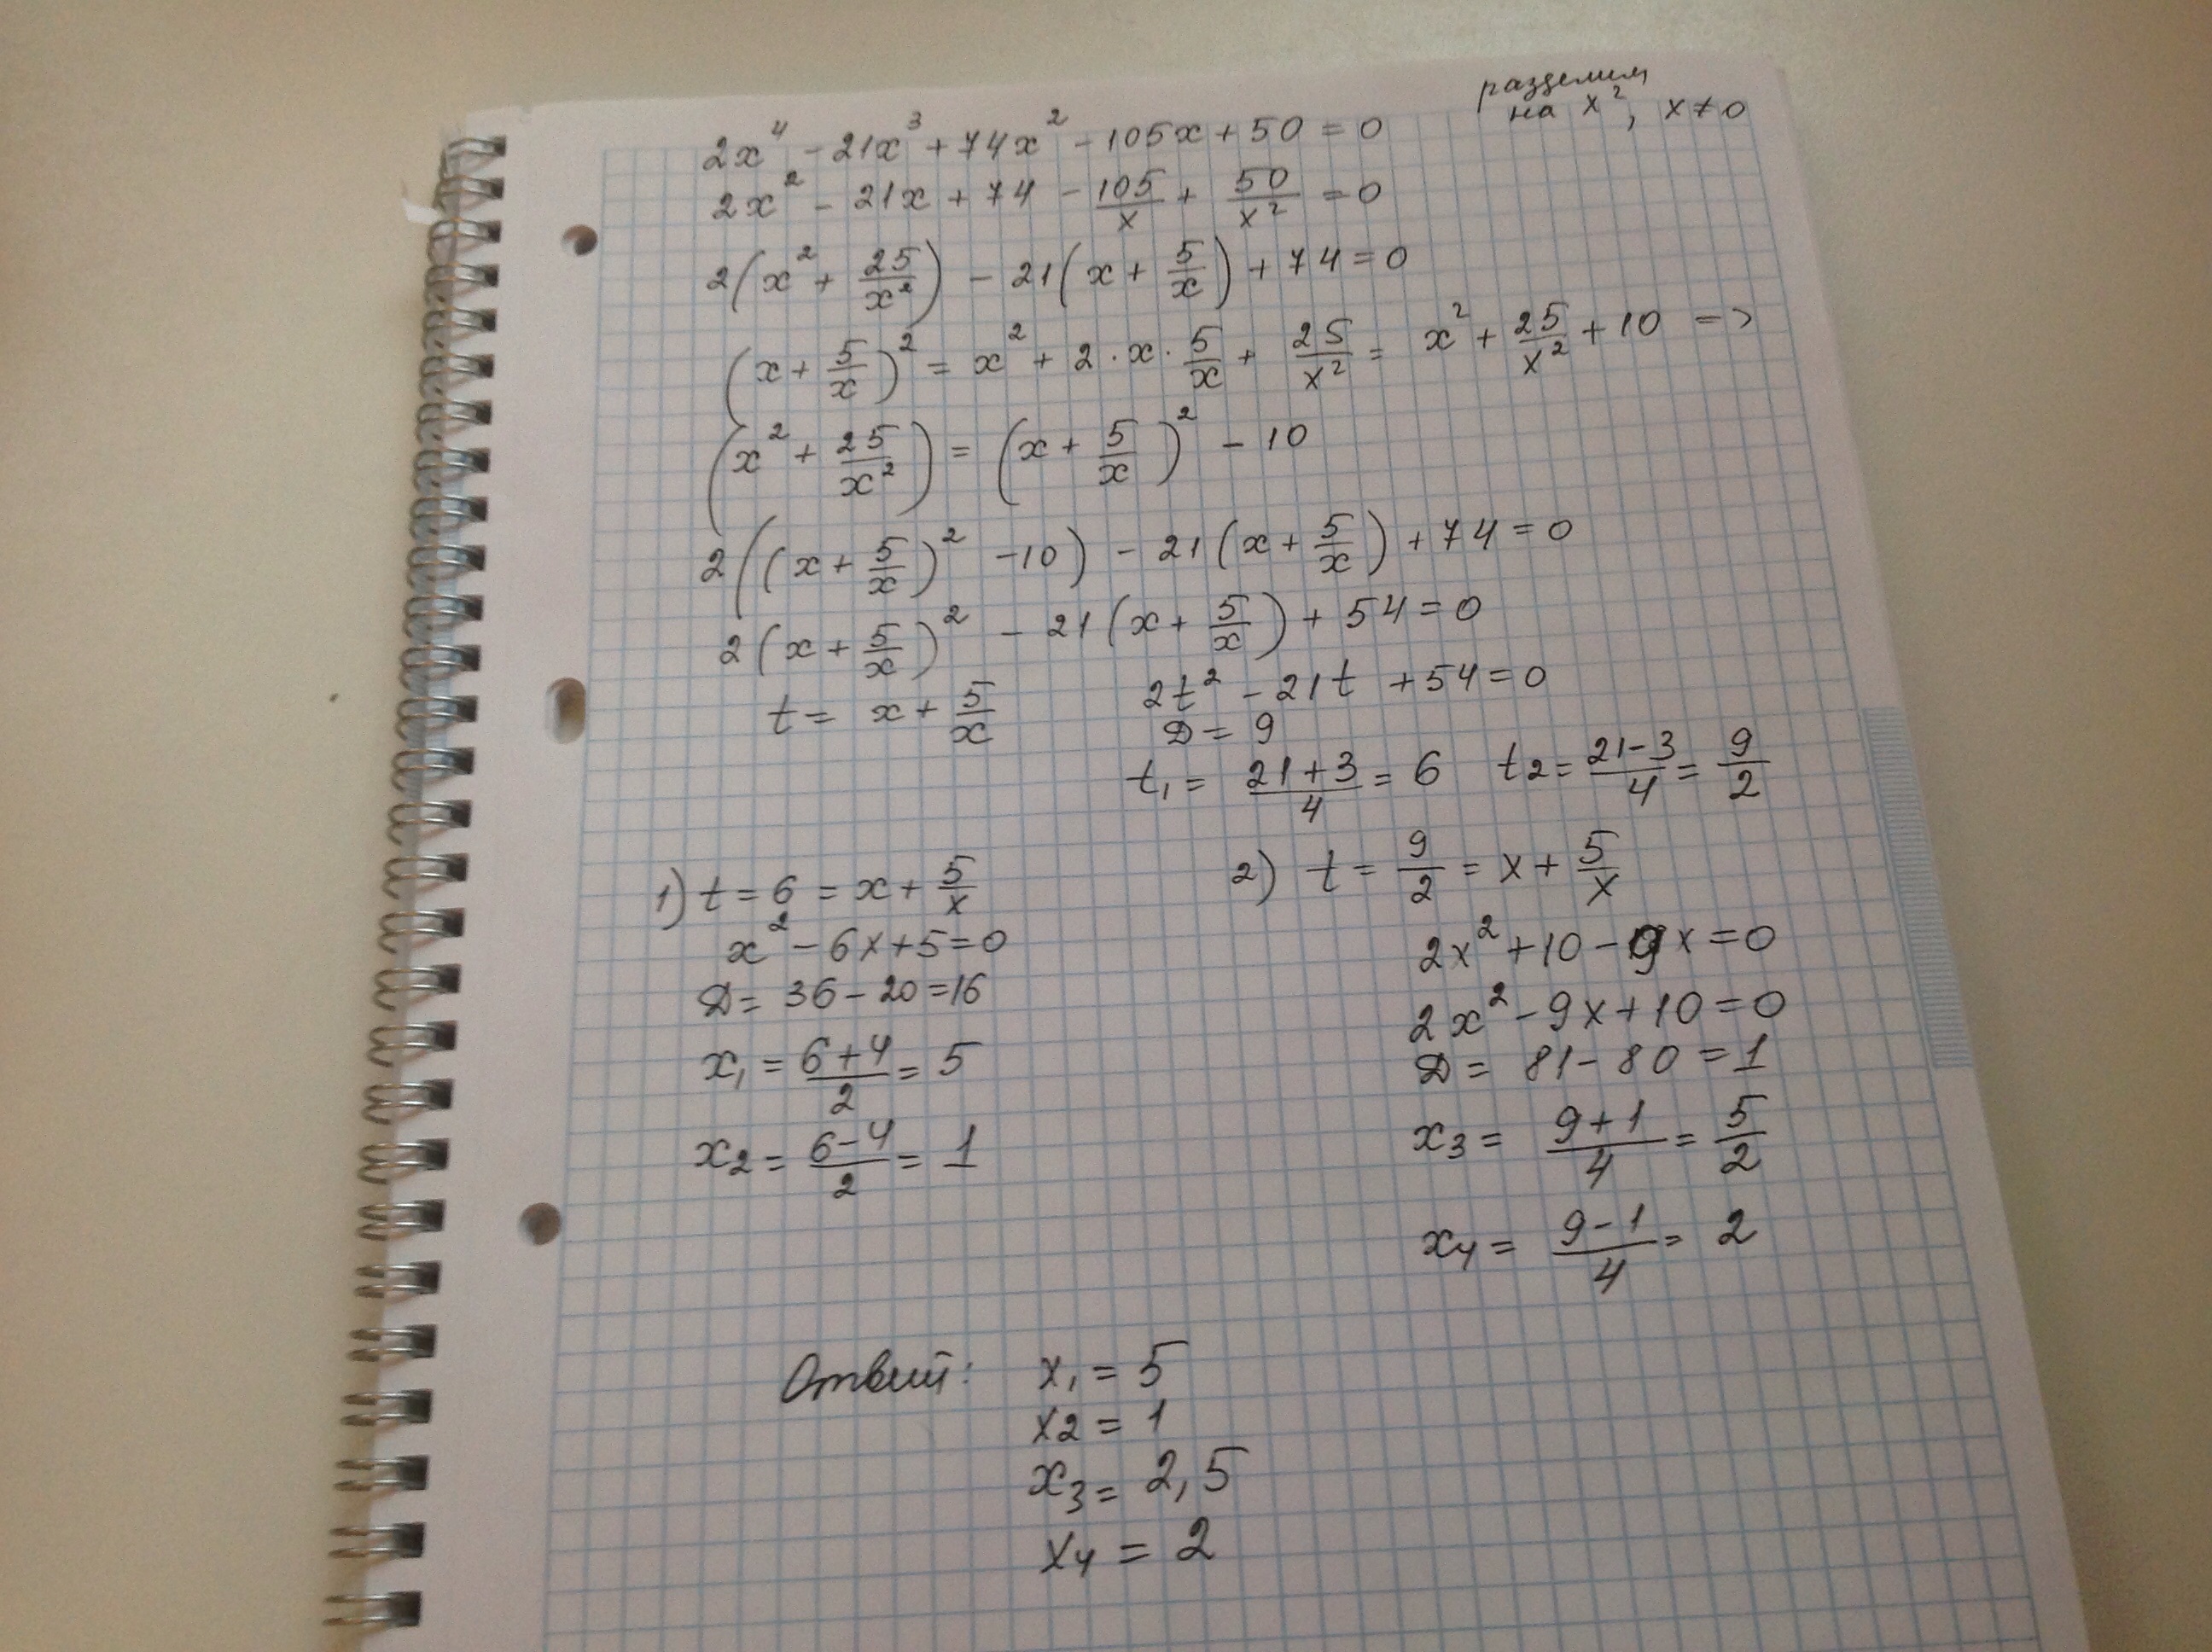 разделим
на x², x ≠ 0
2x⁴ - 21x³ + 74x² - 105x + 50 = 0
2x² - 21x + 74 - 105/x + 50/x² = 0
2(x² + 25/x²) - 21(x + 5/x) + 74 = 0
(x + 5/x)² = x² + 2·x·5/x + 25/x² = x² + 25/x² + 10 =>
(x² + 25/x²) = (x + 5/x)² - 10
2((x + 5/x)² - 10) - 21(x + 5/x) + 74 = 0
2(x + 5/x)² - 21(x + 5/x) + 54 = 0
t = x + 5/x
2t² - 21t + 54 = 0
D = 9
t₁ = (21+3)/4 = 6 t₂ = (21-3)/4 = 9/2
1) t = 6 = x + 5/x
x² - 6x + 5 = 0
D = 36 - 20 = 16
x₁ = (6+4)/2 = 5
x₂ = (6-4)/2 = 1
2) t = 9/2 = x + 5/x
2x² + 10 - 9x = 0
2x² - 9x + 10 = 0
D = 81 - 80 = 1
x₃ = (9+1)/4 = 5/2
x₄ = (9-1)/4 = 2
Ответ: x₁ = 5
x₂ = 1
x₃ = 2,5
x₄ = 2